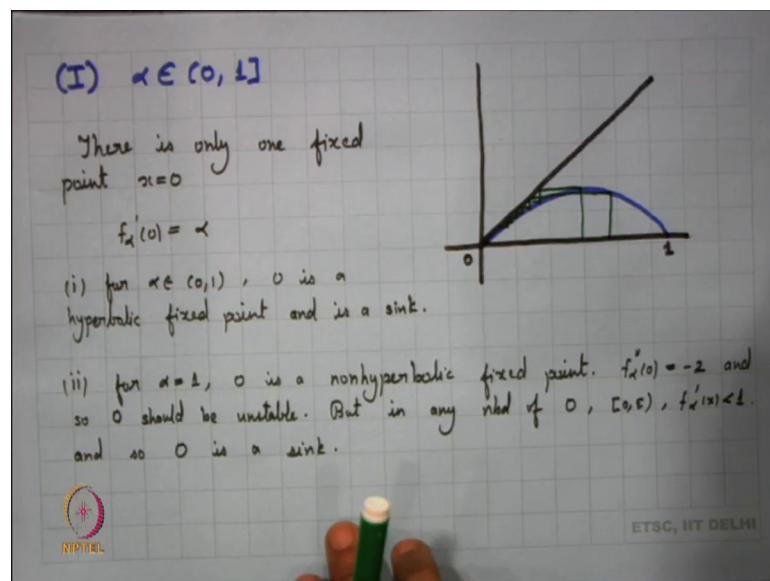 (I) α ∈ (0, 1]
There is only one fixed
point x=0
fα'(0) = α
(i) for α ∈ (0,1), 0 is a
hyperbolic fixed point and is a sink.
(ii) for α=1, 0 is a nonhyperbolic fixed point. fα''(0) = -2 and
so 0 should be unstable. But in any nbd of 0, [0,δ), fα'(x)<1.
and so 0 is a sink.
0
1
NPTEL
ETSC, IIT DELHI